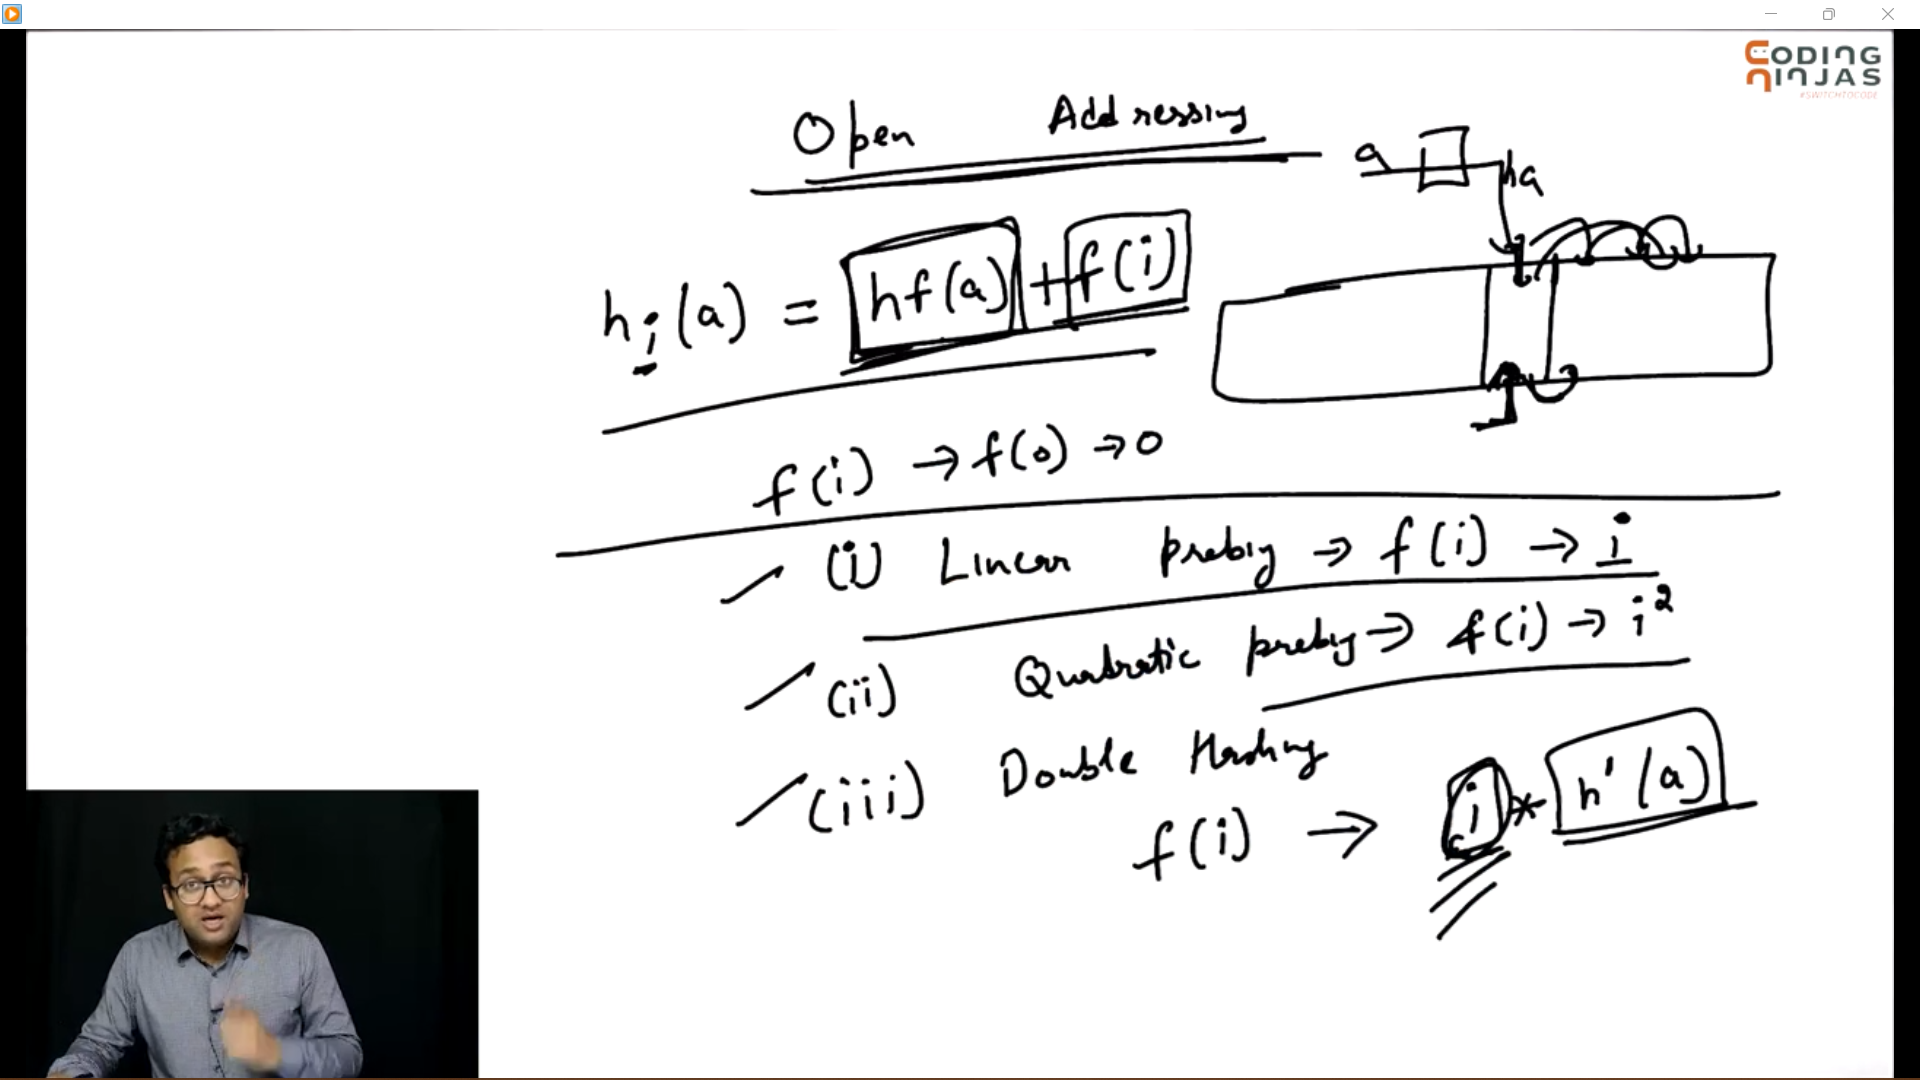 CODING
NINJAS
#SWITCHTOCODE
Open Addressing
a
ha
hi(a) = hf(a) + f(i)
f(i) → f(0) → 0
(i) Linear probing → f(i) → i
(ii) Quadratic probing → f(i) → i²
(iii) Double Hashing
f(i) → i * h'(a)